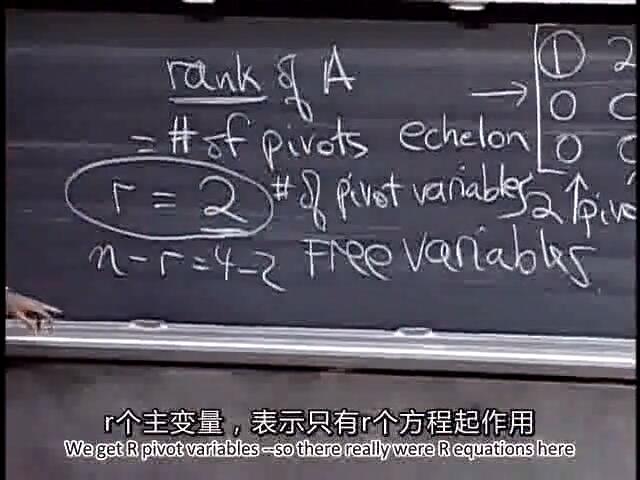 rank of A
= # of pivots echelon
r = 2 # of pivot variables
n - r = 4 - 2 Free variables
① 2
→ 0 0
0 0
↑
2 piv
r个主变量，表示只有r个方程起作用
We get R pivot variables --so there really were R equations here